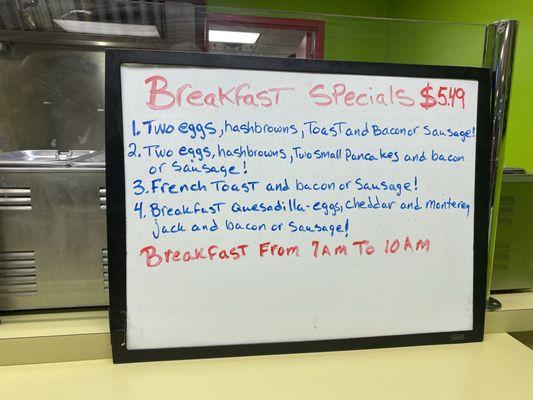 Breakfast Specials $5.49
1. Two eggs, hashbrowns, Toast and Bacon or Sausage!
2. Two eggs, hashbrowns, Two small Pancakes and bacon
or Sausage!
3. French Toast and bacon or Sausage!
4. Breakfast Quesadilla-eggs, cheddar and monterey
jack and bacon or Sausage!
Breakfast From 7AM To 10AM